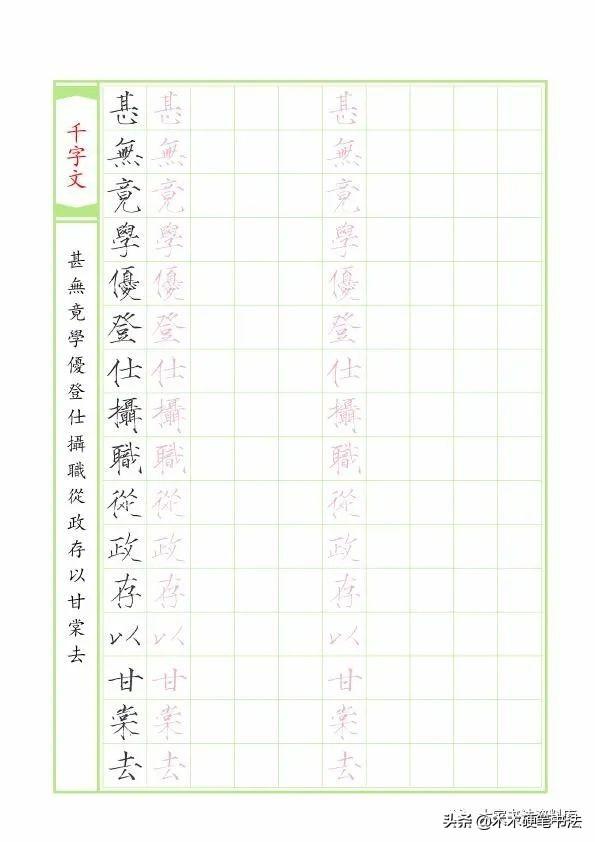 千字文
甚無竟學優登仕攝職從政存以甘棠去
甚無竟學優登仕攝職從政存以甘棠去
甚無竟學優登仕攝職從政存以甘棠去
甚無竟學優登仕攝職從政存以甘棠去
头条 @硬笔书法